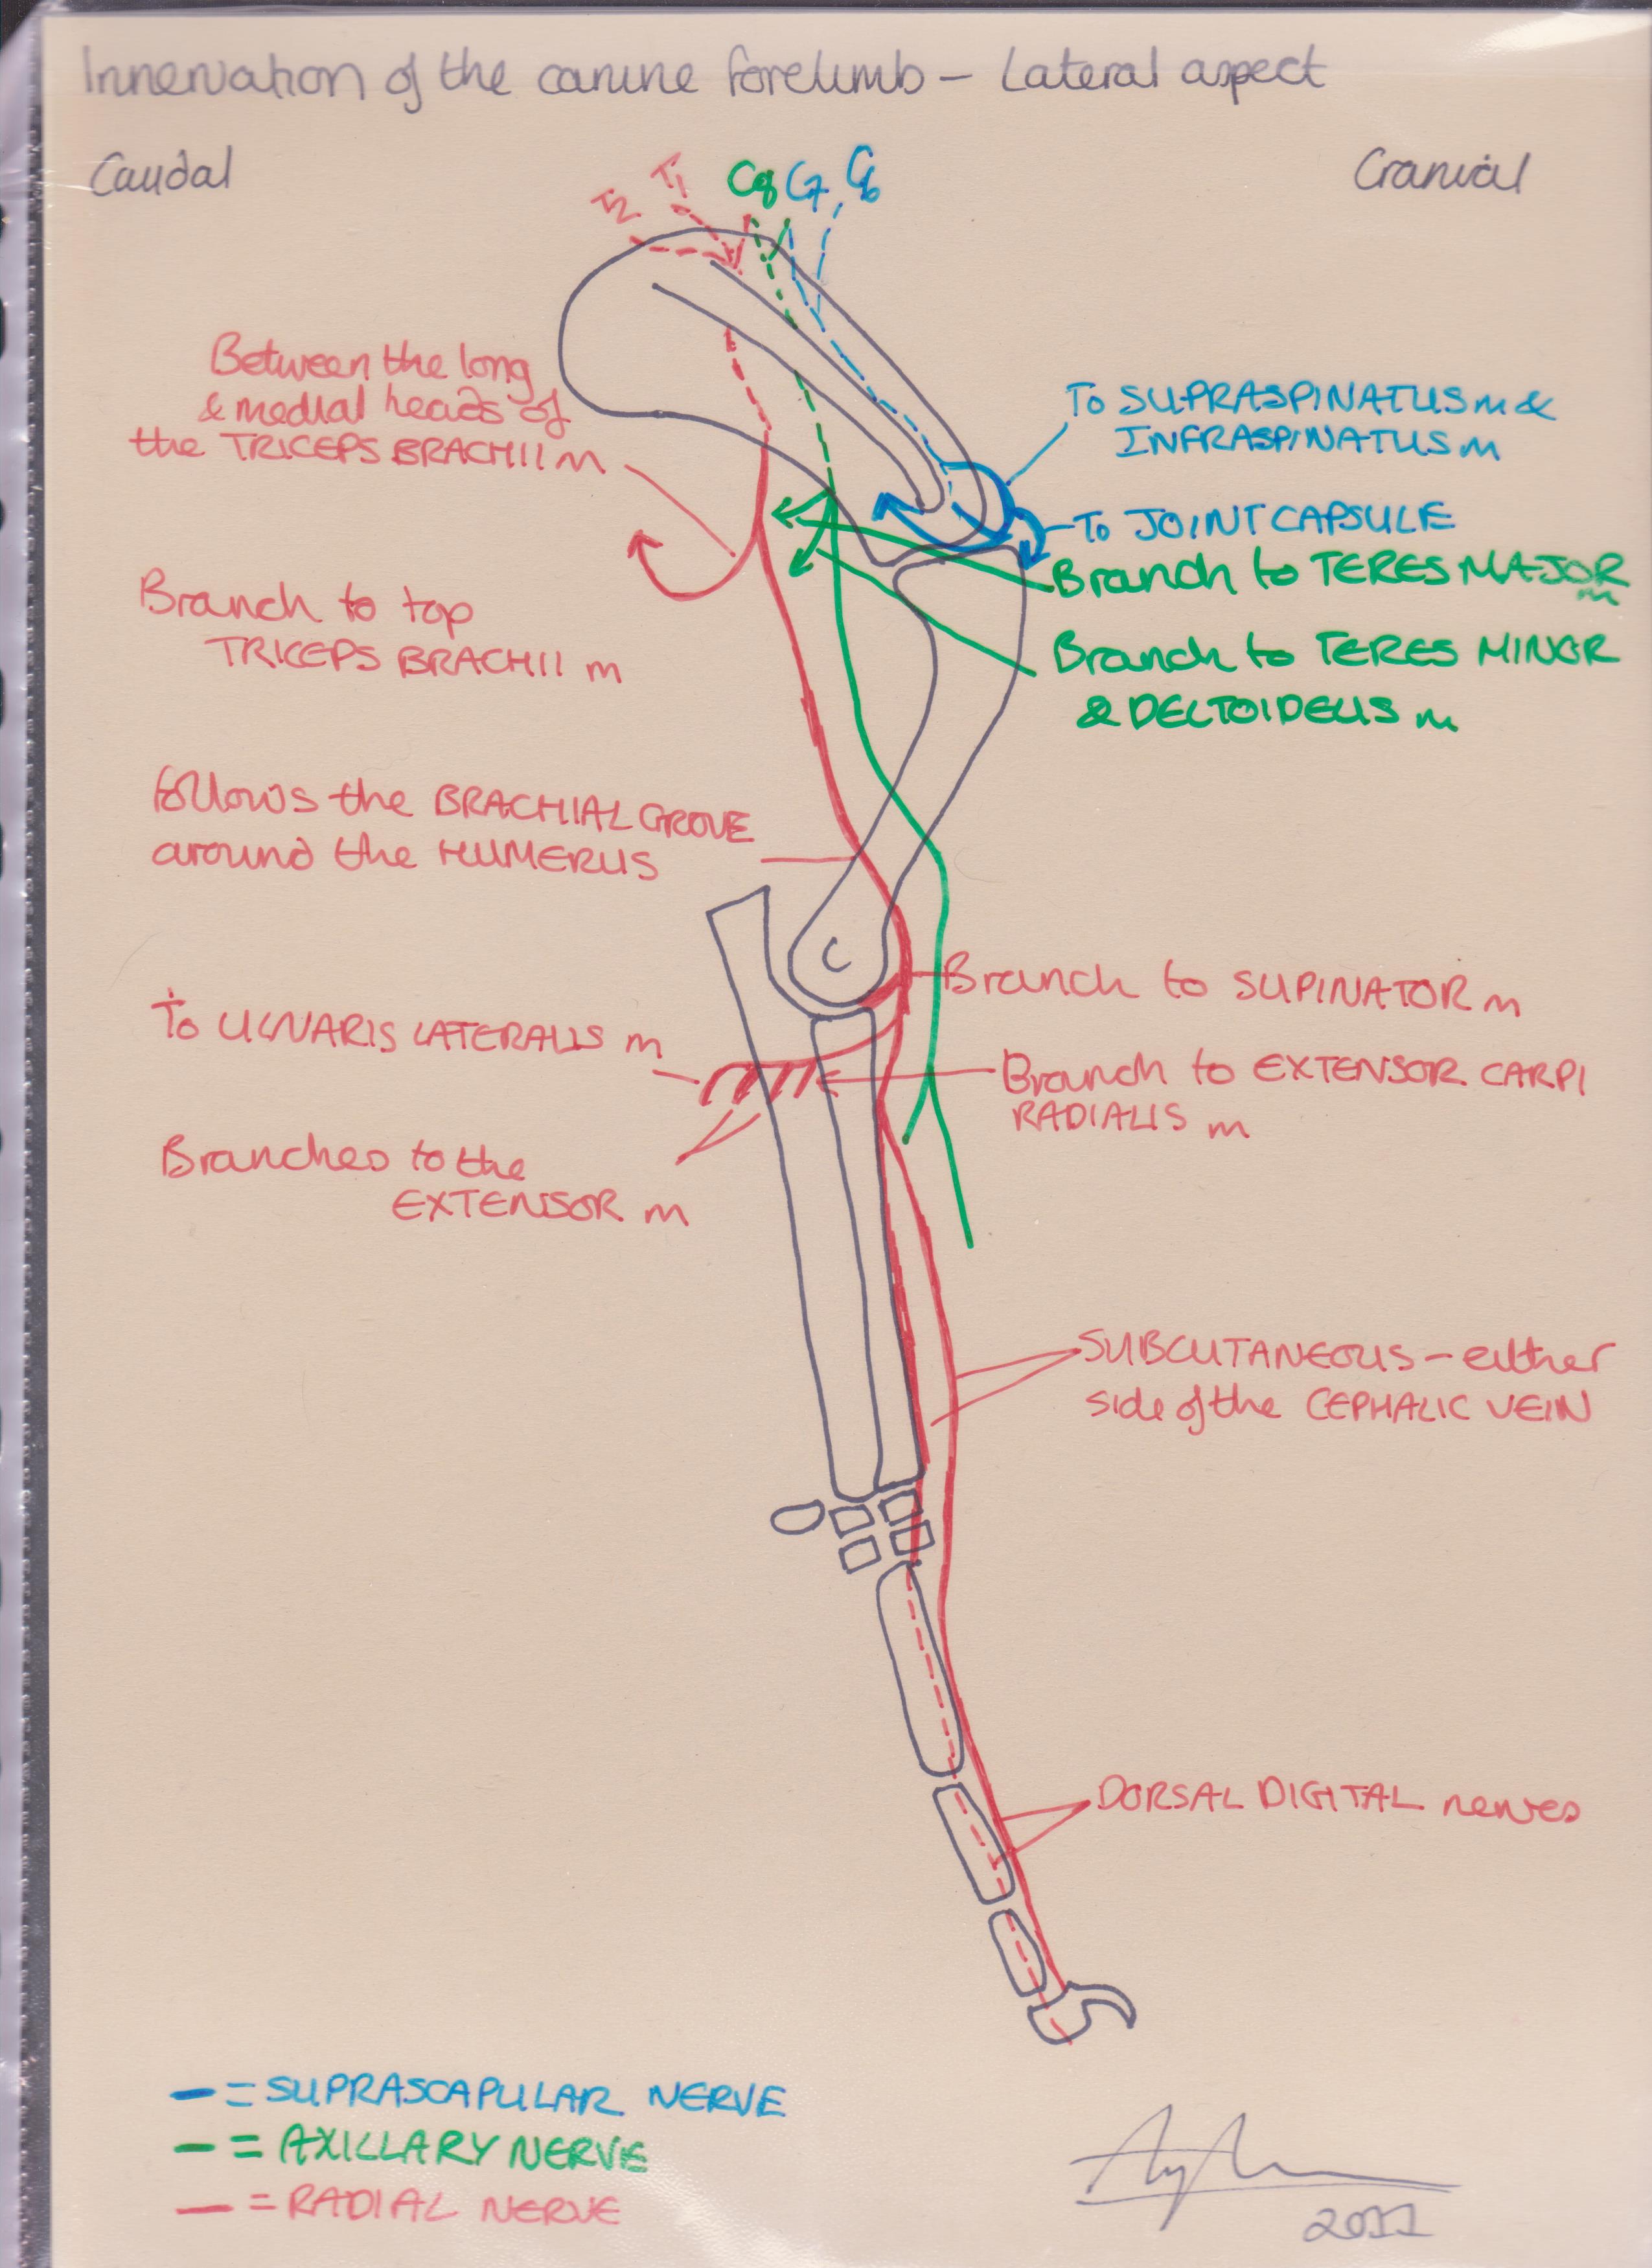 Innervation of the canine forelimb – Lateral aspect
Caudal
Cranial
T2 T1 C8 C7 C6
Between the long
& medial heads of
the TRICEPS BRACHII m
To SUPRASPINATUS m &
INFRASPINATUS m
To JOINT CAPSULE
Branch to TERES MAJOR
m
Branch to top
TRICEPS BRACHII m
Branch to TERES MINOR
& DELTOIDEUS m
follows the BRACHIAL GROVE
around the HUMERUS
Branch to SUPINATOR m
To ULNARIS LATERALIS m
Branch to EXTENSOR CARPI
RADIALIS m
Branches to the
EXTENSOR m
SUBCUTANEOUS – either
side of the CEPHALIC VEIN
DORSAL DIGITAL nerves
– = SUPRASCAPULAR NERVE
– = AXILLARY NERVE
– = RADIAL NERVE
2011